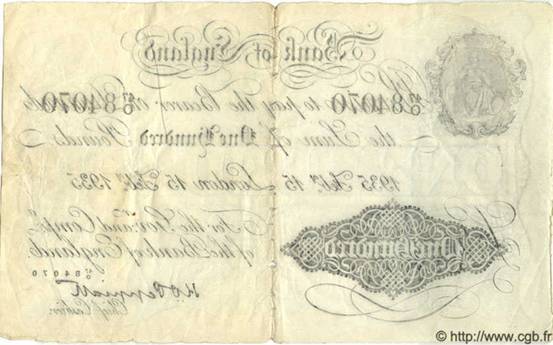 Bank of England
84070 to pay the Bearer on 84070
the Sum of One Hundred Pounds
1935 Feby 15 London 15 Feby 1935
For the Govr and Compa
of the Bank of England
84070
One Hundred
K.O. Peppiatt
Chief Cashier.
© http://www.cgb.fr